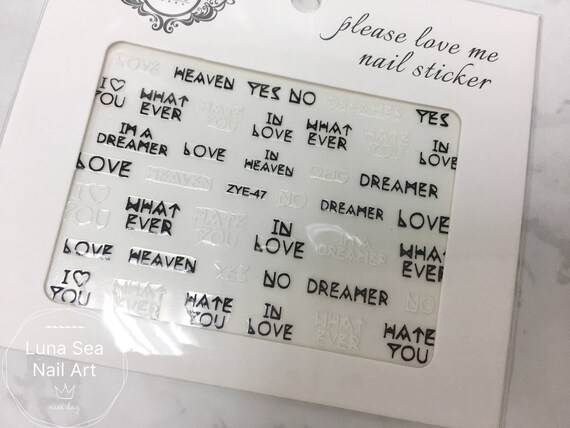 please love me
nail sticker
LOVE HEAVEN YES NO DREAMER YES
I♡ YOU WHAT EVER HATE YOU IN LOVE WHAT EVER HATE YOU IN LOVE
I'M A DREAMER LOVE IN HEAVEN OMG DREAMER
LOVE HEAVEN ZYE-47 NO DREAMER LOVE
I♡ YOU WHAT EVER HATE YOU IN LOVE I'M A DREAMER WHAT EVER
LOVE HEAVEN YES NO DREAMER NO
I♡ YOU WHAT EVER HATE YOU IN LOVE WHAT EVER HATE YOU
Luna Sea
Nail Art